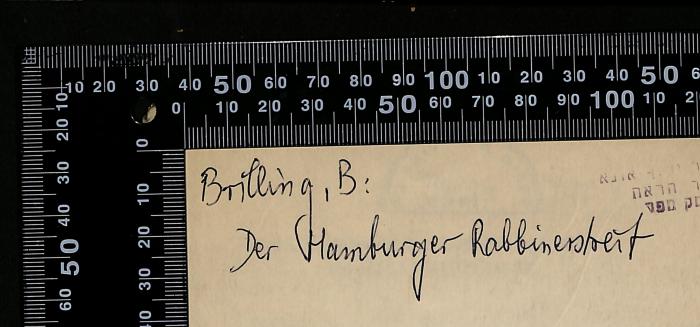 10 20 30 40 50 60 70 80 90 100 10 20 30 40 50 6
0 10 20 30 40 50 60 70 80 90 100 10 2
10 20 30 40 50 60
0 10 20 30 40
Brilling, B:
Der Hamburger Rabbinerstreit
הראה